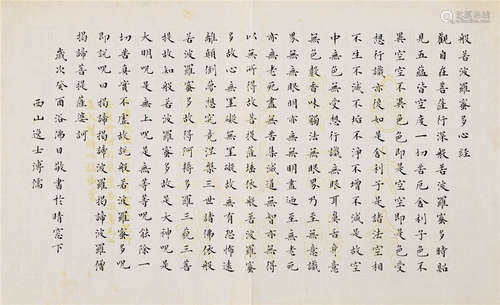 般若波羅蜜多心經
觀自在菩薩行深般若波羅蜜多時照
見五蘊皆空度一切苦厄舍利子色不
異空空不異色色即是空空即是色受
想行識亦復如是舍利子是諸法空相
不生不滅不垢不淨不增不減是故空
中無色無受想行識無眼耳鼻舌身意
無色聲香味觸法無眼界乃至無意識
界無無明亦無無明盡迺至無老死
亦無老死盡無苦集滅道無智亦無得
以無所得故菩提薩埵依般若波羅蜜
多故心無罣礙無罣礙故無有恐怖遠
離顛倒夢想究竟涅槃三世諸佛依般
若波羅蜜多故得阿耨多羅三藐三菩
提故知般若波羅蜜多是大神呪是
大明呪是無上呪是無等等呪能除一
切苦真實不虛故說般若波羅蜜多呪
即說呪曰揭諦揭諦波羅揭諦波羅僧
揭諦菩提薩婆訶
歲次癸酉浴佛日敬書於晴窗下
西山逸士溥儒